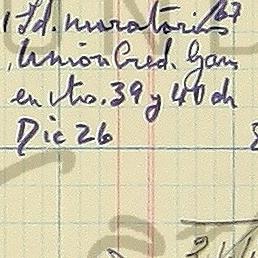 Id. moratorios /67
Unión Cred. Gan
en vto. 39 y 40 de
Dic 26